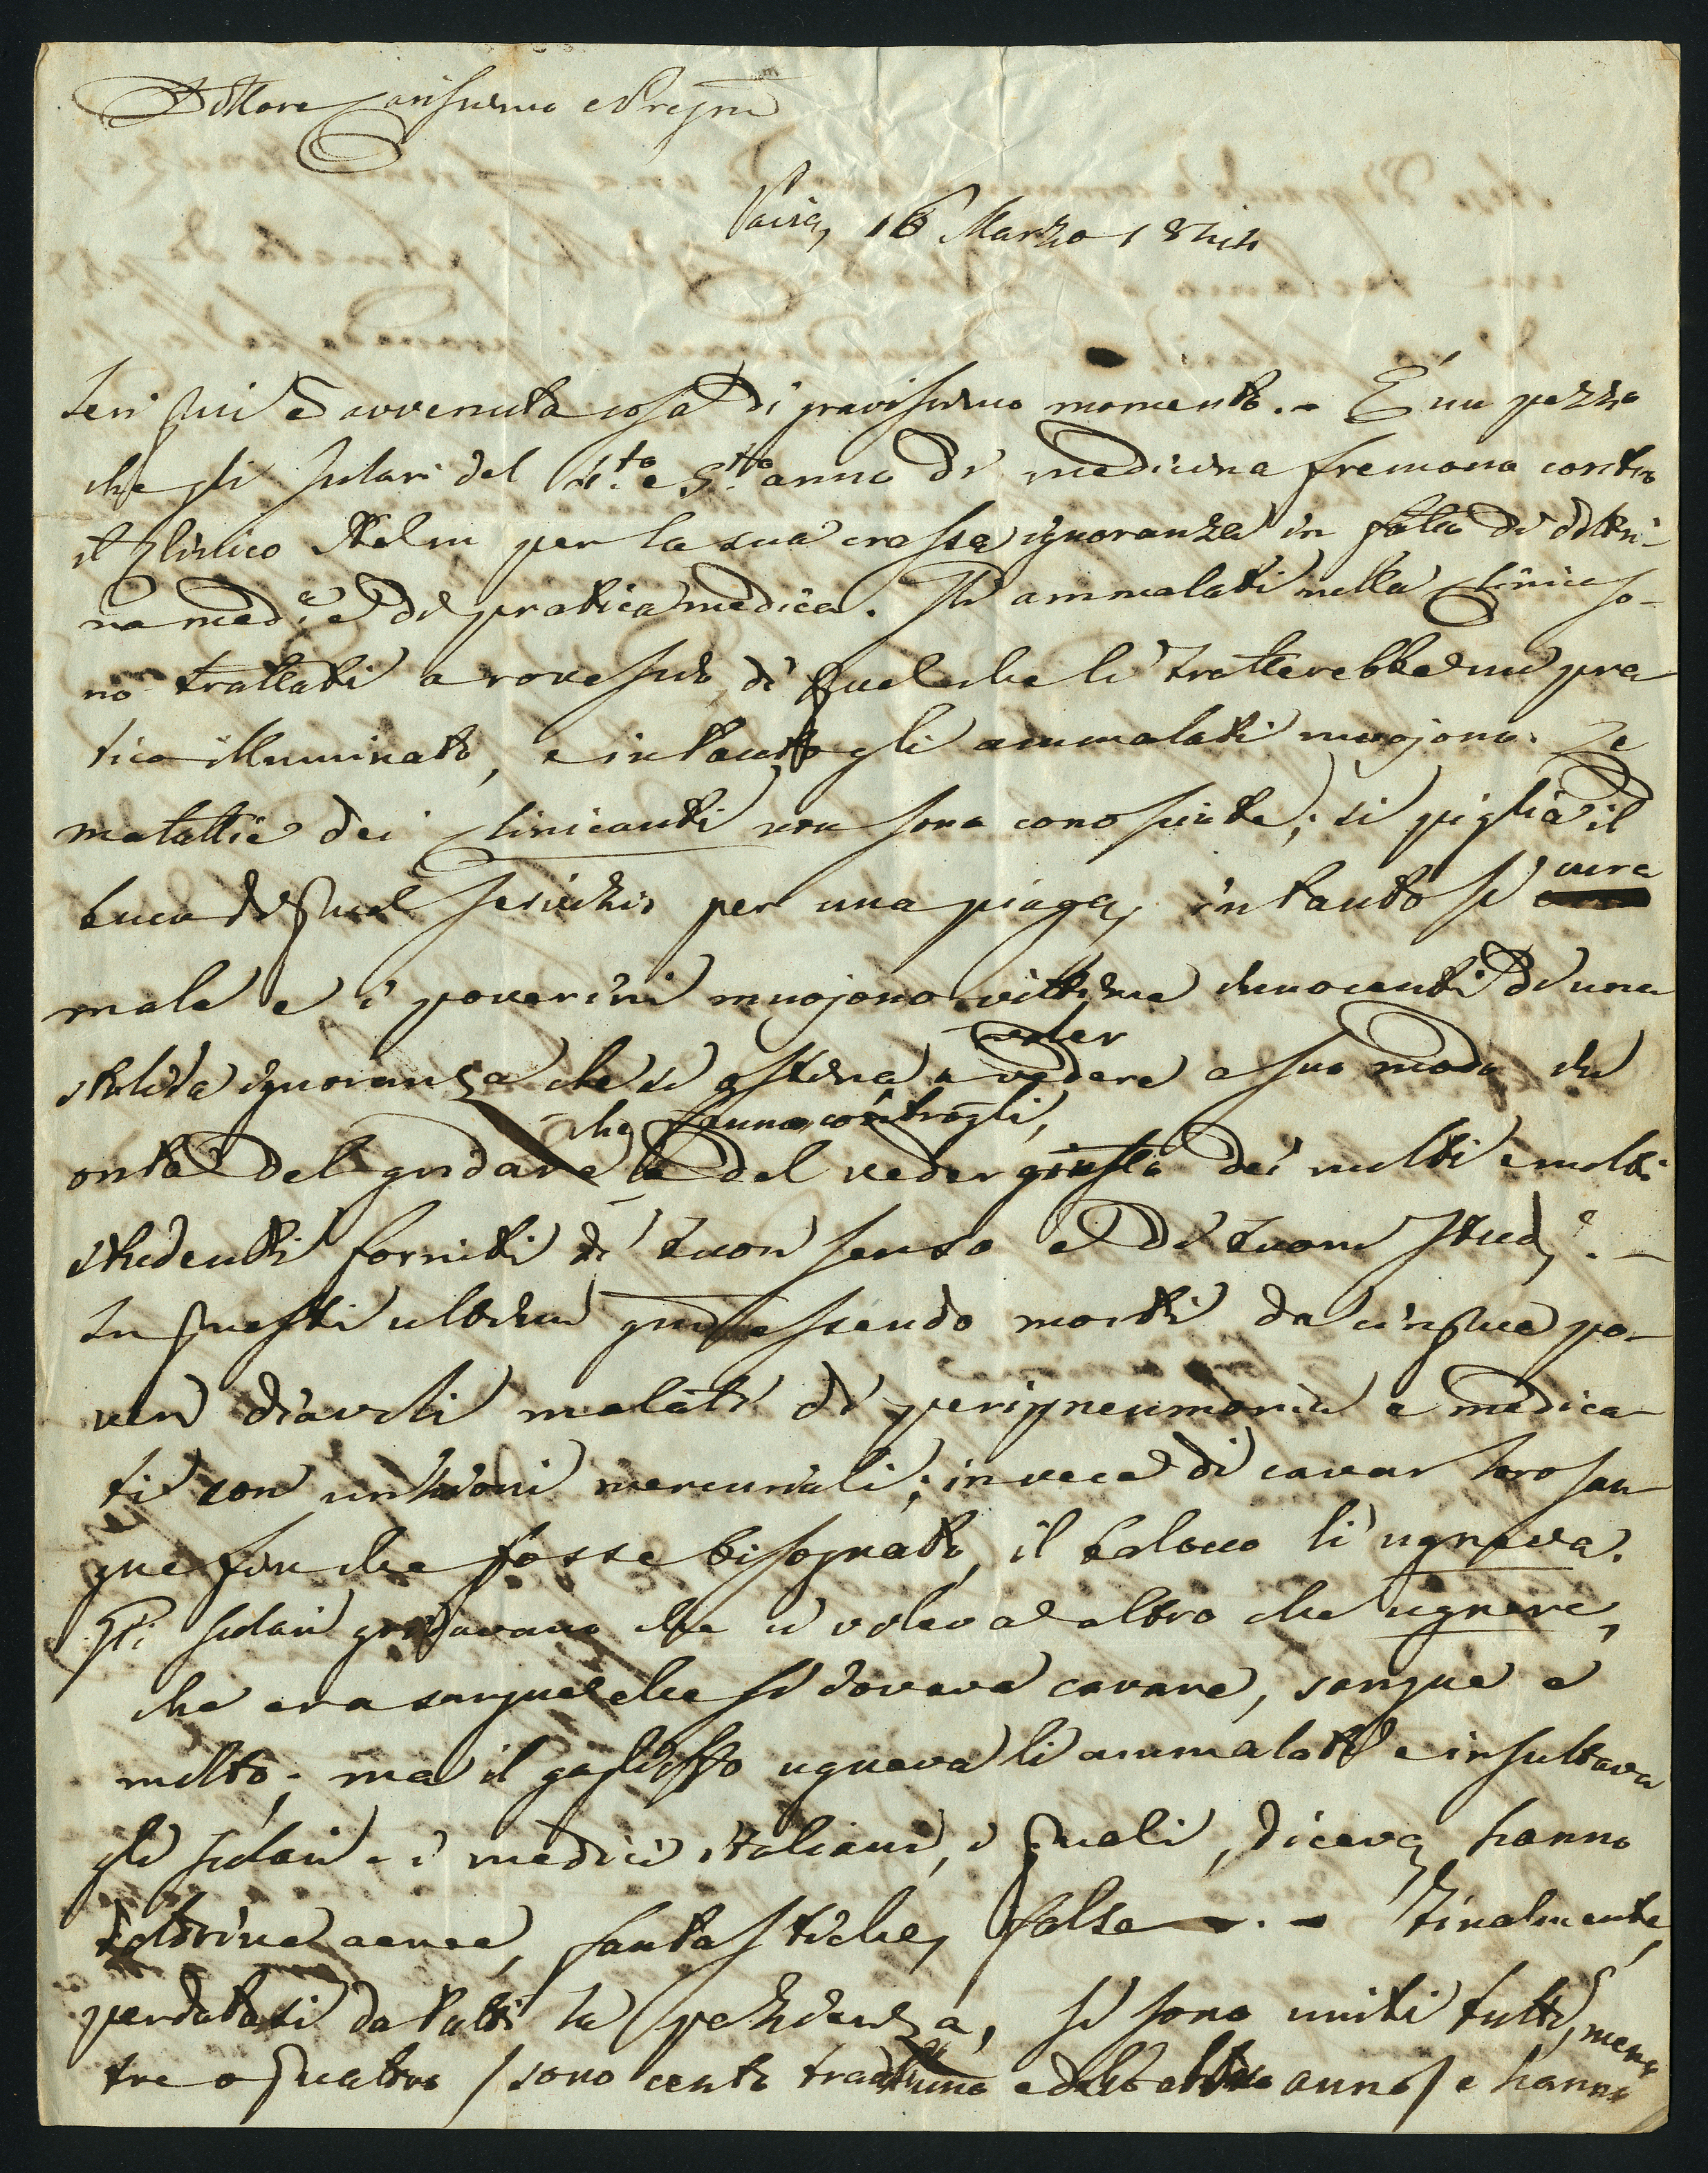 Dottore Carissimo e Pregmo
Pavia, 16 Marzo 1844
Ieri qui è avvenuta cosa di gravissimo momento. - È un pezzo
che gli scolari del 4.to e 5.to anno di medicina fremono contro
il Clinico Helm per la sua crassa ignoranza in fatto di dottri-
na med.a e di pratica medica. Gli ammalati nella Clinica so-
no trattati a rovescio di quel che li tratterebbe un pra
tico illuminato, e intanto gli ammalati muojono. Le
malattie dei clinicanti non sono conosciute; si piglia il
buco di qual per una piaga, intanto si cura
male e i poverini muojono vittime innocenti di una
stolida ignoranza che si ostina a voler vedere a suo modo in
onta del gridare che fanno contro gli, e del veder giusto dei molti e molti
studenti forniti di buon senso e di buoni studj. -
In questi ultimi giorni essendo morti da cinque po-
veri diavoli malati di peripneumonia e medica-
ti con unzioni mercuriali; invece di cavar loro san-
gue finche fosse bisognato, il balocco li ugneva.
Gli scolari gridavano che ci voleva altro che ugnere,
che era sangue che si doveva cavare, sangue e
molto; ma il gaglioffo ugneva li ammalati e insultava
gli scolari e i medici italiani, i quali, diceva, hanno
dottrine aeree, fantastiche, false - . - Finalmente,
perdutasi da tutti la pazienza, si sono uniti tutti, meno
tre o quattro / sono cento tra l'uno e l'altro anno / e hanno